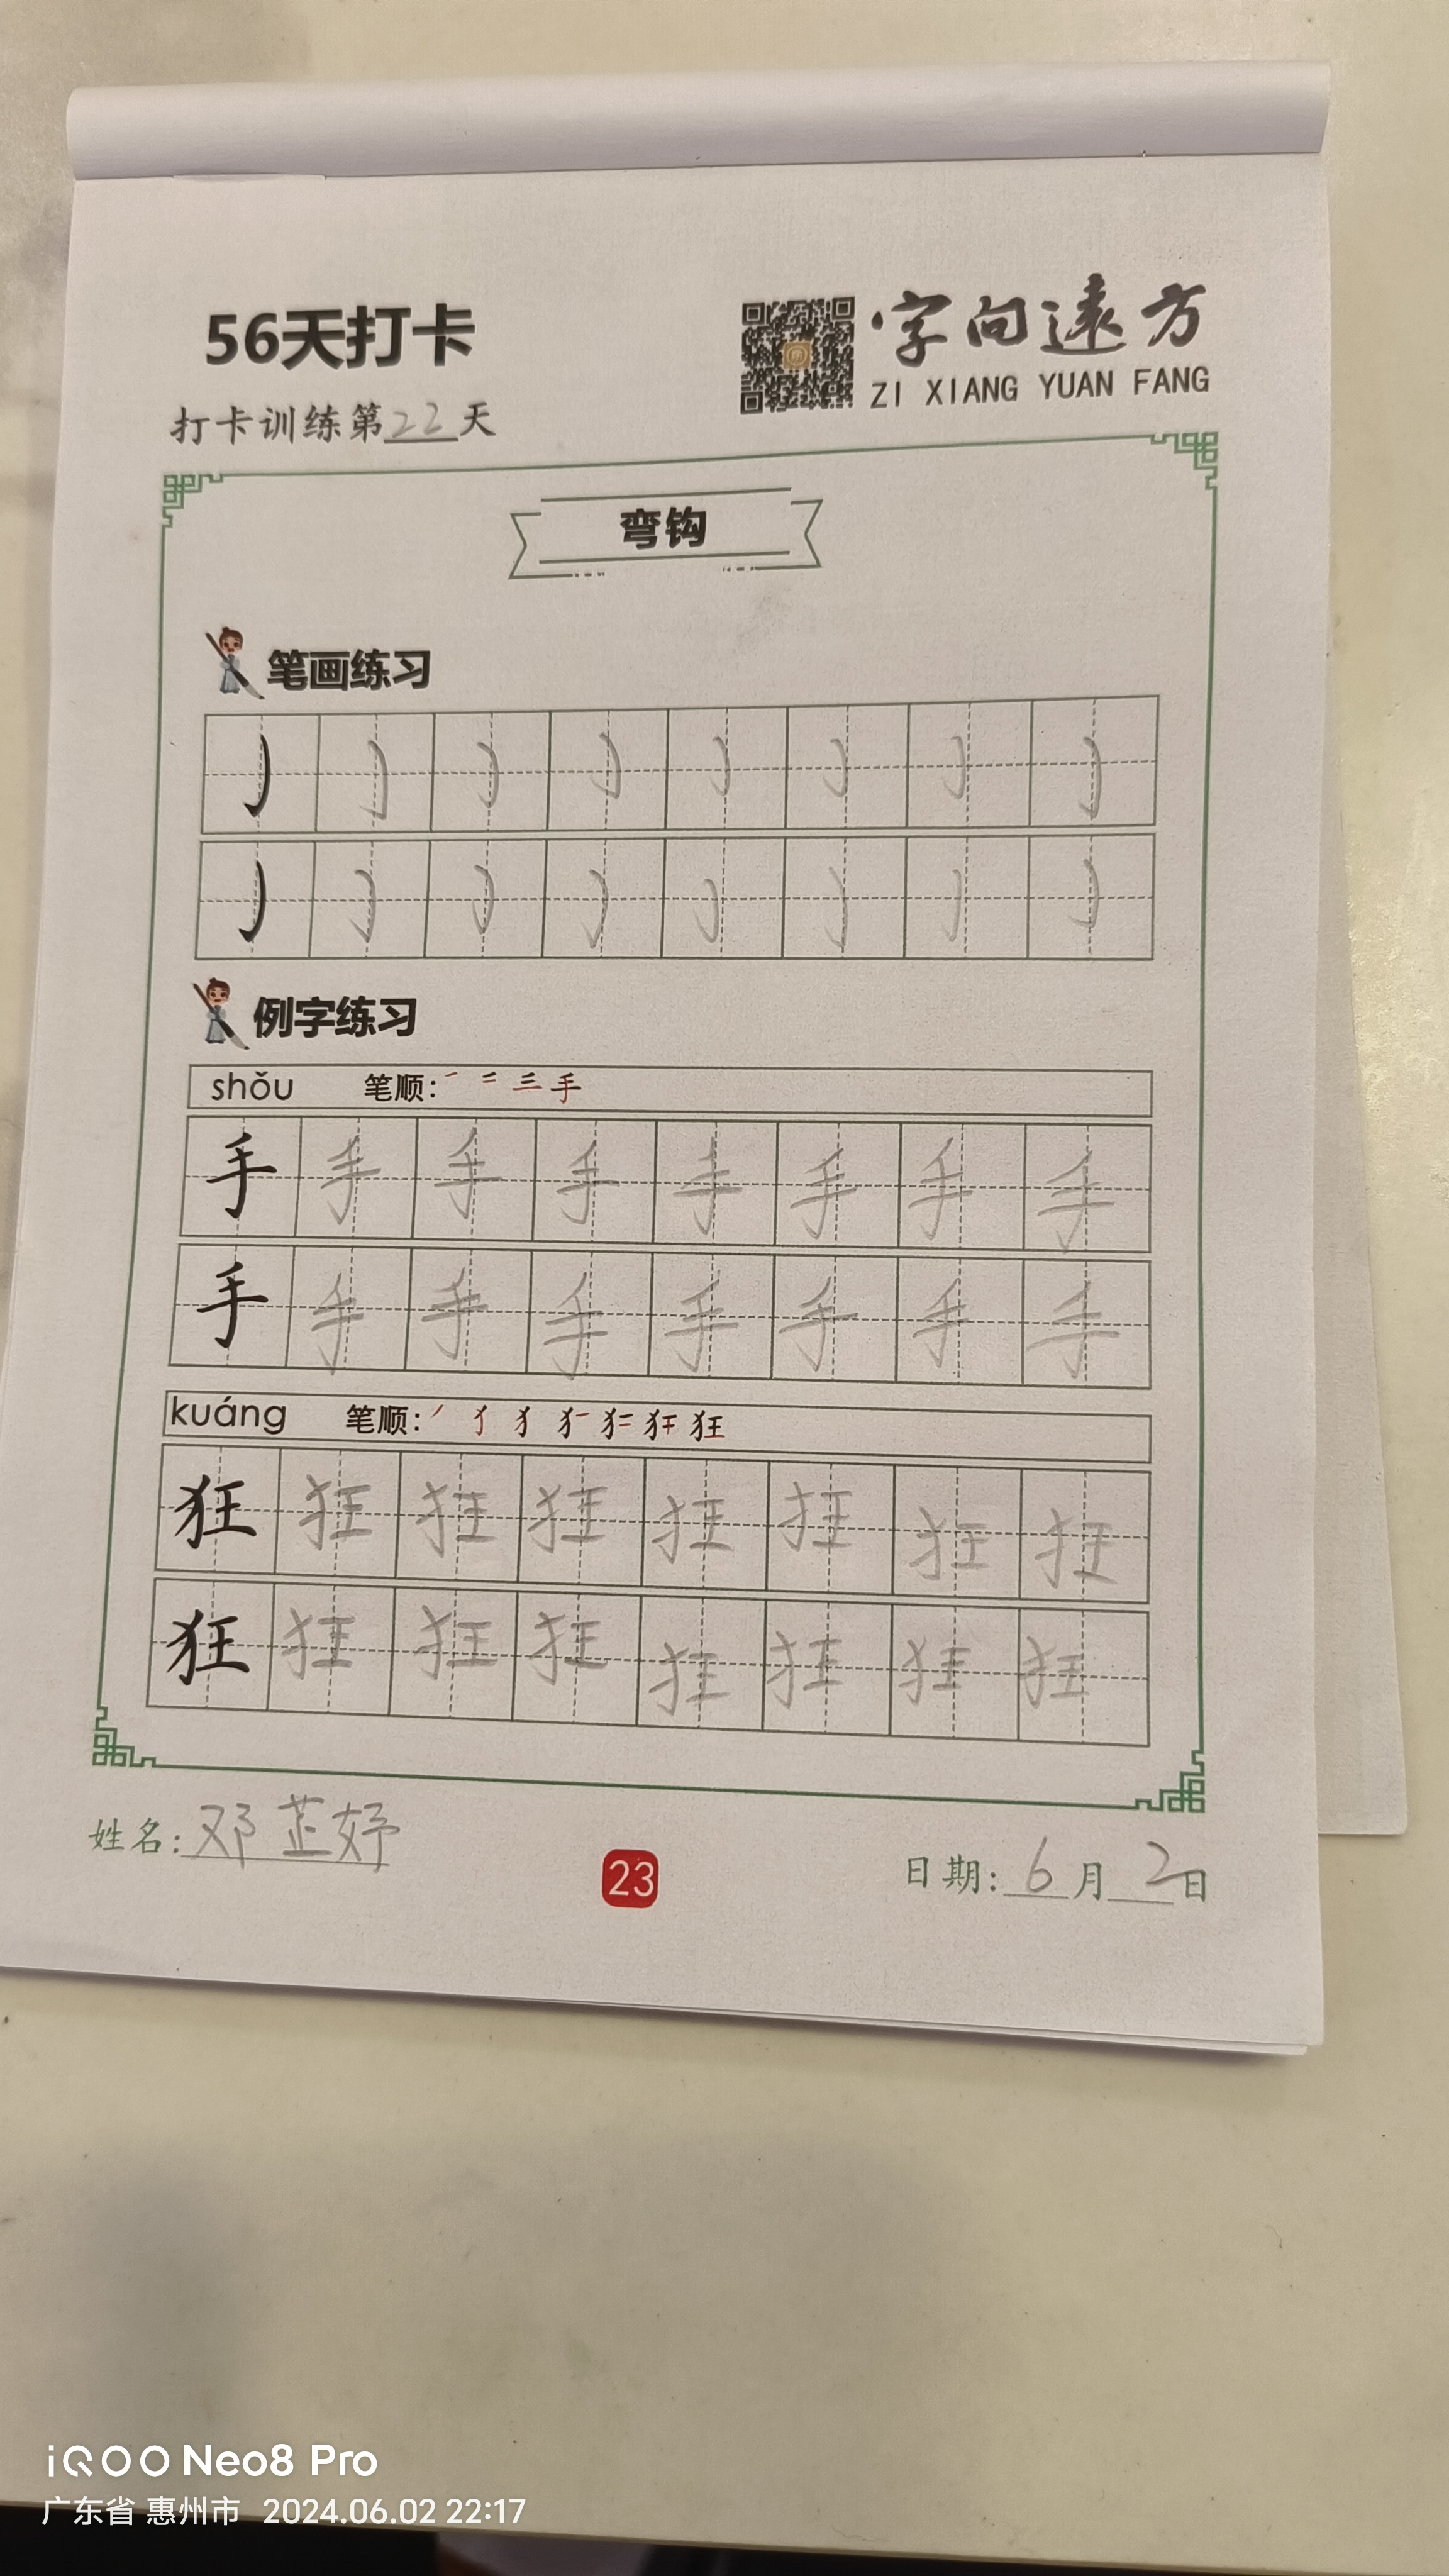 56天打卡
字向遠方
ZI XIANG YUAN FANG
打卡训练第22天
弯钩
笔画练习
例字练习
shǒu 笔顺: 手
手 手 手 手 手 手 手 手
手 手 手 手 手 手 手 手
kuáng 笔顺: 狂
狂 狂 狂 狂 狂 狂 狂 狂
狂 狂 狂 狂 狂 狂 狂 狂
姓名: 邓芷妤
23
日期: 6月2日
iQOO Neo8 Pro
广东省 惠州市 2024.06.02 22:17